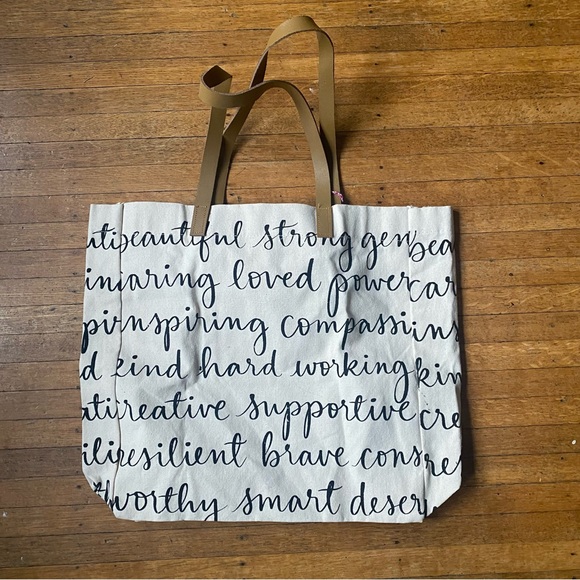 beautiful strong gen bea
aring loved power car
nspiring compassi ins
kind hard working kin
reative supportive cre
resilient brave cons res
worthy smart deser